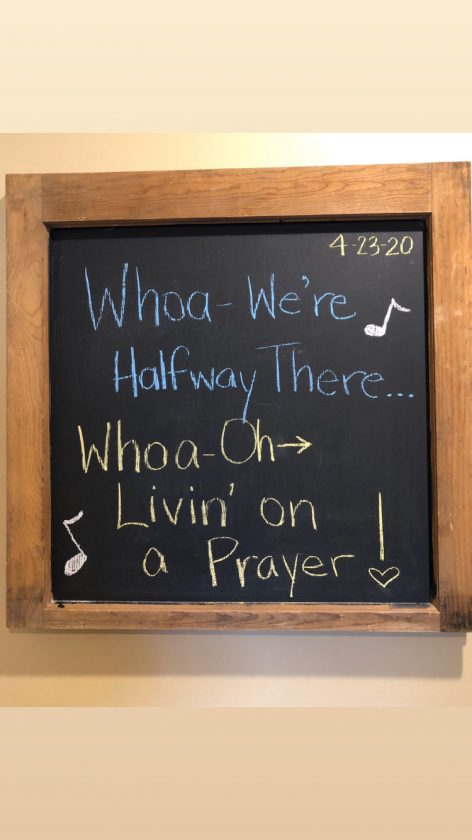 4-23-20
Whoa-We're
Halfway There...
Whoa-Oh→
Livin' on
a Prayer!